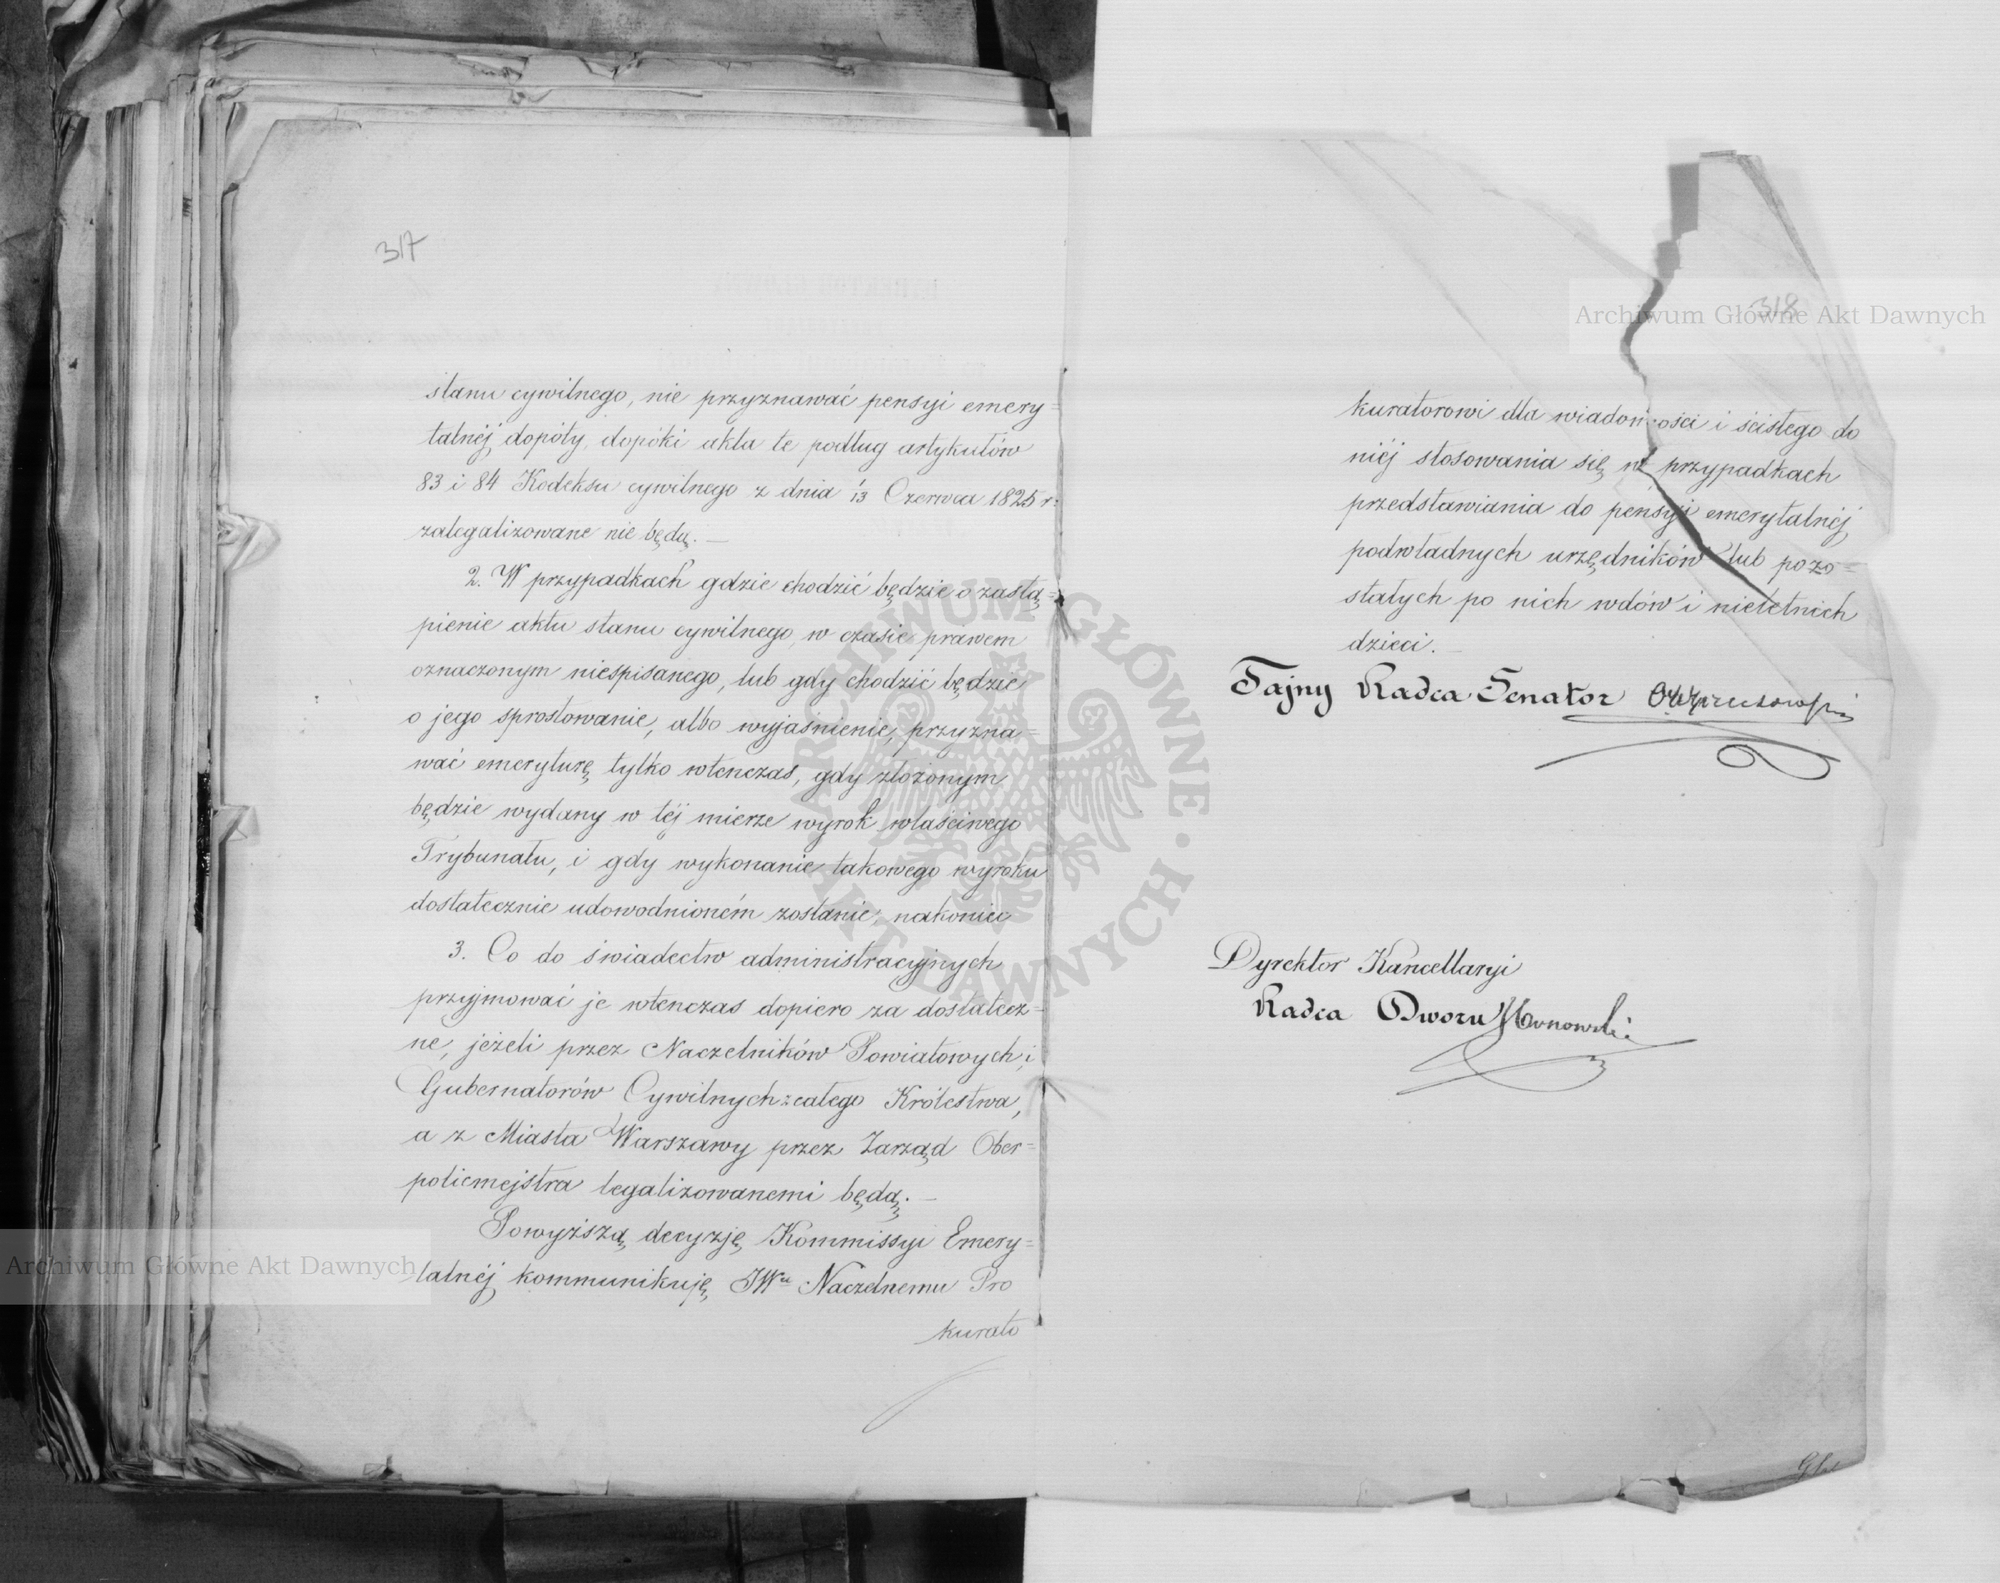 317
stanu cywilnego, nie przyznawać pensyi emery=
talnéj dopóty, dopóki akta te podług artykułów
83 i 84 Kodeksu cywilnego z dnia 1/13 Czerwca 1825 r:
zalegalizowane nie będą. —
2. W przypadkach gdzie chodzić będzie o zastą=
pienie aktu stanu cywilnego, w czasie prawem
oznaczonym niespisanego, lub gdy chodzić będzie
o jego sprostowanie, albo wyjaśnienie, przyzna=
wać emeryturę tylko wtenczas, gdy złożonym
będzie wydany w téj mierze wyrok właściwego
Trybunału, i gdy wykonanie takowego wyroku
dostatecznie udowodnioném zostanie, nakoniec
3. Co do świadectw administracyjnych
przyjmować je wtenczas dopiero za dostatecz=
ne, jeżeli przez Naczelników Powiatowych i
Gubernatorów Cywilnych z całego Królestwa,
a z Miasta Warszawy przez Zarząd Ober=
policmejstra legalizowanemi będą. —
Powyższą decyzję Kommissyi Emery=
talnéj kommunikuję JWu Naczelnemu Pro
kurato
318
kuratorowi dla wiadomości i ścisłego do
niéj stosowania się w przypadkach
przedstawiania do pensyi emerytalnéj
podwładnych urzędników lub pozo=
stałych po nich wdów i nieletnich
dzieci. —
Tajny Radca Senator
Dyrektor Kancellaryi
Radca Dworu
Archiwum Główne Akt Dawnych
Archiwum Główne Akt Dawnych
ARCHIWUM GŁÓWNE AKT DAWNYCH